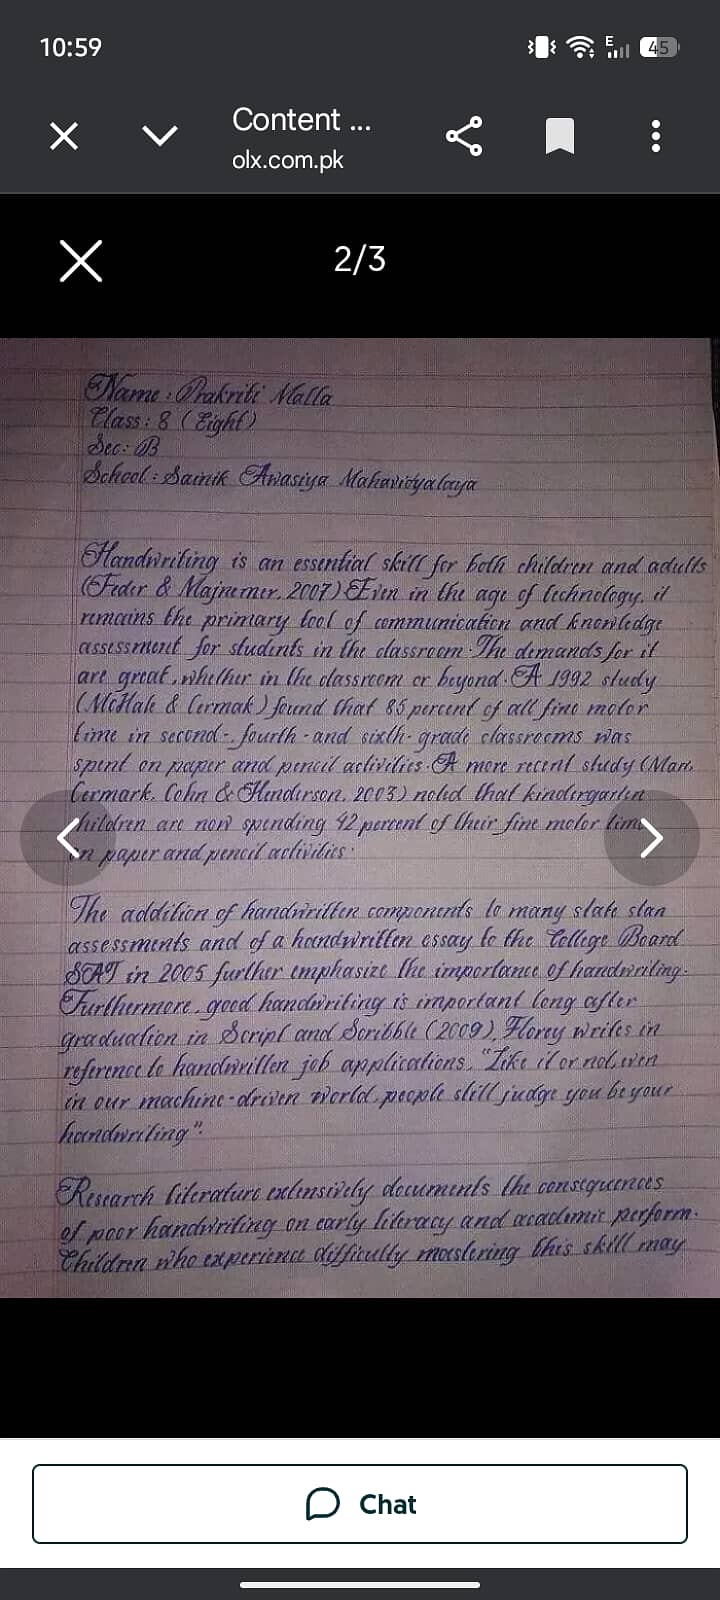 10:59
E
45
Content ...
olx.com.pk
2/3
Name : Prakriti Malla
Class : 8 ( Eight )
Sec : B
School : Sainik Awasiya Mahavidyalaya
Handwriting is an essential skill for both children and adults
(Feder & Majnemer, 2007) Even in the age of technology, it
remains the primary tool of communication and knowledge
assessment for students in the classroom. The demands for it
are great, whether in the classroom or beyond. A 1992 study
(McHale & Cermak) found that 85 percent of all fine motor
time in second-, fourth-and sixth-grade classrooms was
spent on paper and pencil activities. A more recent study (Marr,
Cermark, Cohn & Henderson, 2003) noted that kindergarten
hildren are now spending 42 percent of their fine motor tim
n paper and pencil activities.
The addition of handwritten components to many state stan
assessments and of a handwritten essay to the College Board
SAT in 2005 further emphasize the importance of handwriting.
Furthermore, good handwriting is important long after
graduation in Script and Scribble (2009), Florey writes in
reference to handwritten job applications, "Like it or not, even
in our machine-driven world, people still judge you be your
handwriting".
Research literature extensively documents the consequences
of poor handwriting on early literacy and academic perform.
Children who experience difficulty mastering this skill may
Chat